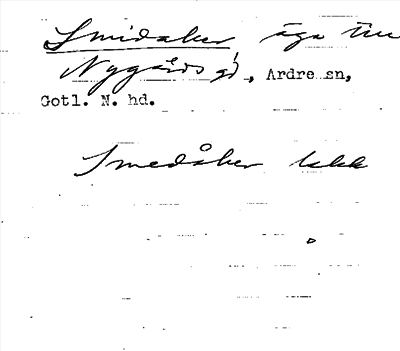 Smidaker äga till
Nygårds gd, Ardre sn,
Gotl. N. hd.
Smedåker